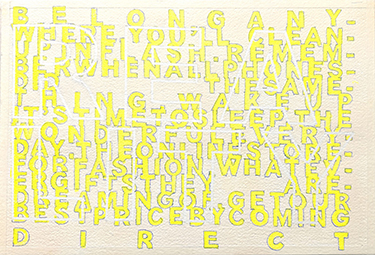 BELONG ANY-
WHERE YOU'LL CLEAN
REMEM-
BER WHEN ALL PHONES
THE SAME.
THING WAKE UP
IT'S TIME TO SLEEP THE
WONDERFUL EVERY-
DAY. THE
FOR FASHION WHAT
GIFTS THEY ARE
DREAMING OF. GET OUR
BEST PRICE BY COMING
DIRECT